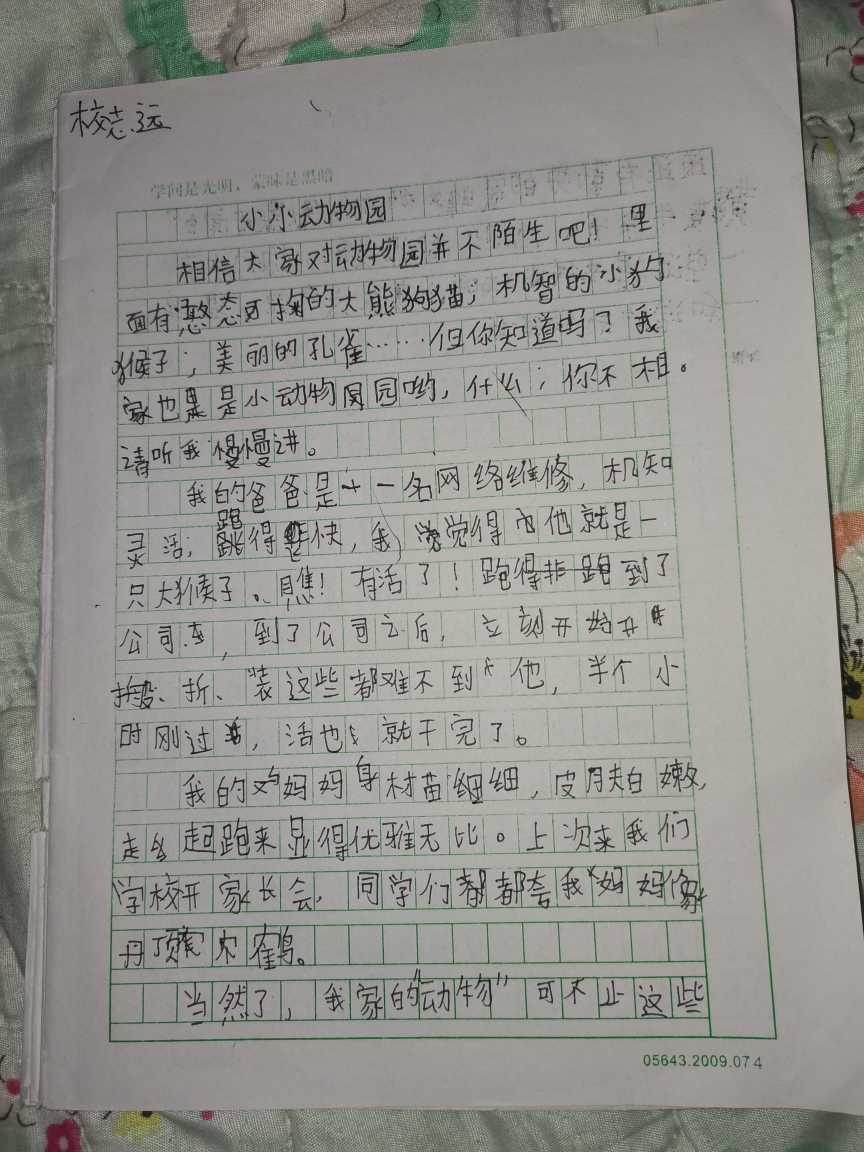 校志远
学问是光明，蒙昧是黑暗
小尔动物园
相信大家对动物园并不陌生吧！里
面有憨态可掬的大熊狗猫；机智的小狗
猴子；美丽的孔雀……但你知道吗？我
家也是小动物园哟，什么；你不相。
请听我慢慢讲。
我的爸爸是一名网络维修，机知
灵活；跑得快，我觉得他就是一
只大猴子。瞧！有活了！跑得非跑到了
公司，到了公司之后，立刻开始开
折、装这些都难不到他，半个小
时刚过，活也就干完了。
我的妈妈身材苗细细，皮肤白嫩，
走起跑来显得优雅无比。上次来我们
学校开家长会，同学们都夸我妈妈像
丹顶鹤。
当然了，我家的“动物”可不止这些
05643.2009.07 4